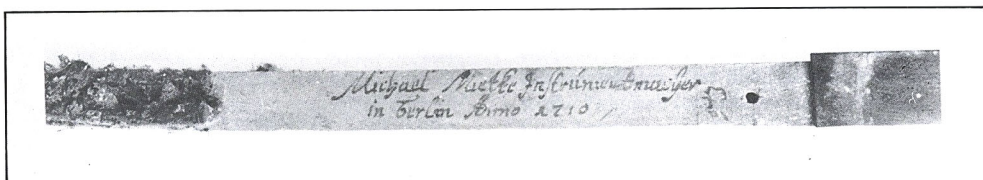 Michael Mietke Instrumentmacher
in Berlin Anno 1710